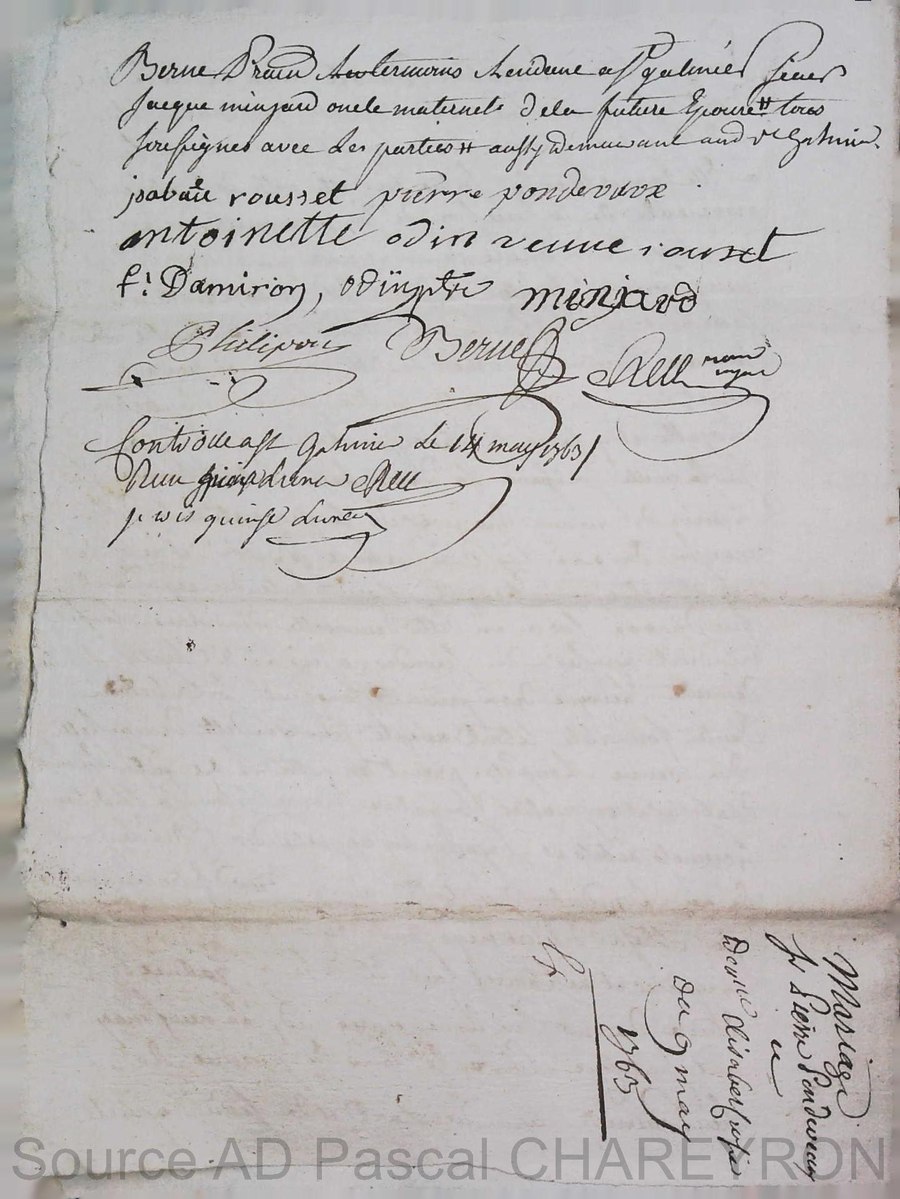 Berne demeurant a St galmier sieur
jacque minjard oncle maternele de la future Epouse tous
sousignes avec les parties aussy demeurant aud St Galmier
isabau rousset pierre pondevaux
antoinette odin veuve rouset
f: Damiron, odin ptre minjard
Philipon Berne Rell
Controlle a St Galmier le 14 may 1763
Recu Rell
quinse livres
Mariage
Sr Pierre Pondeveaux
et
Delle Elisabet
Du 9 may
1763
Source AD Pascal CHAREYRON